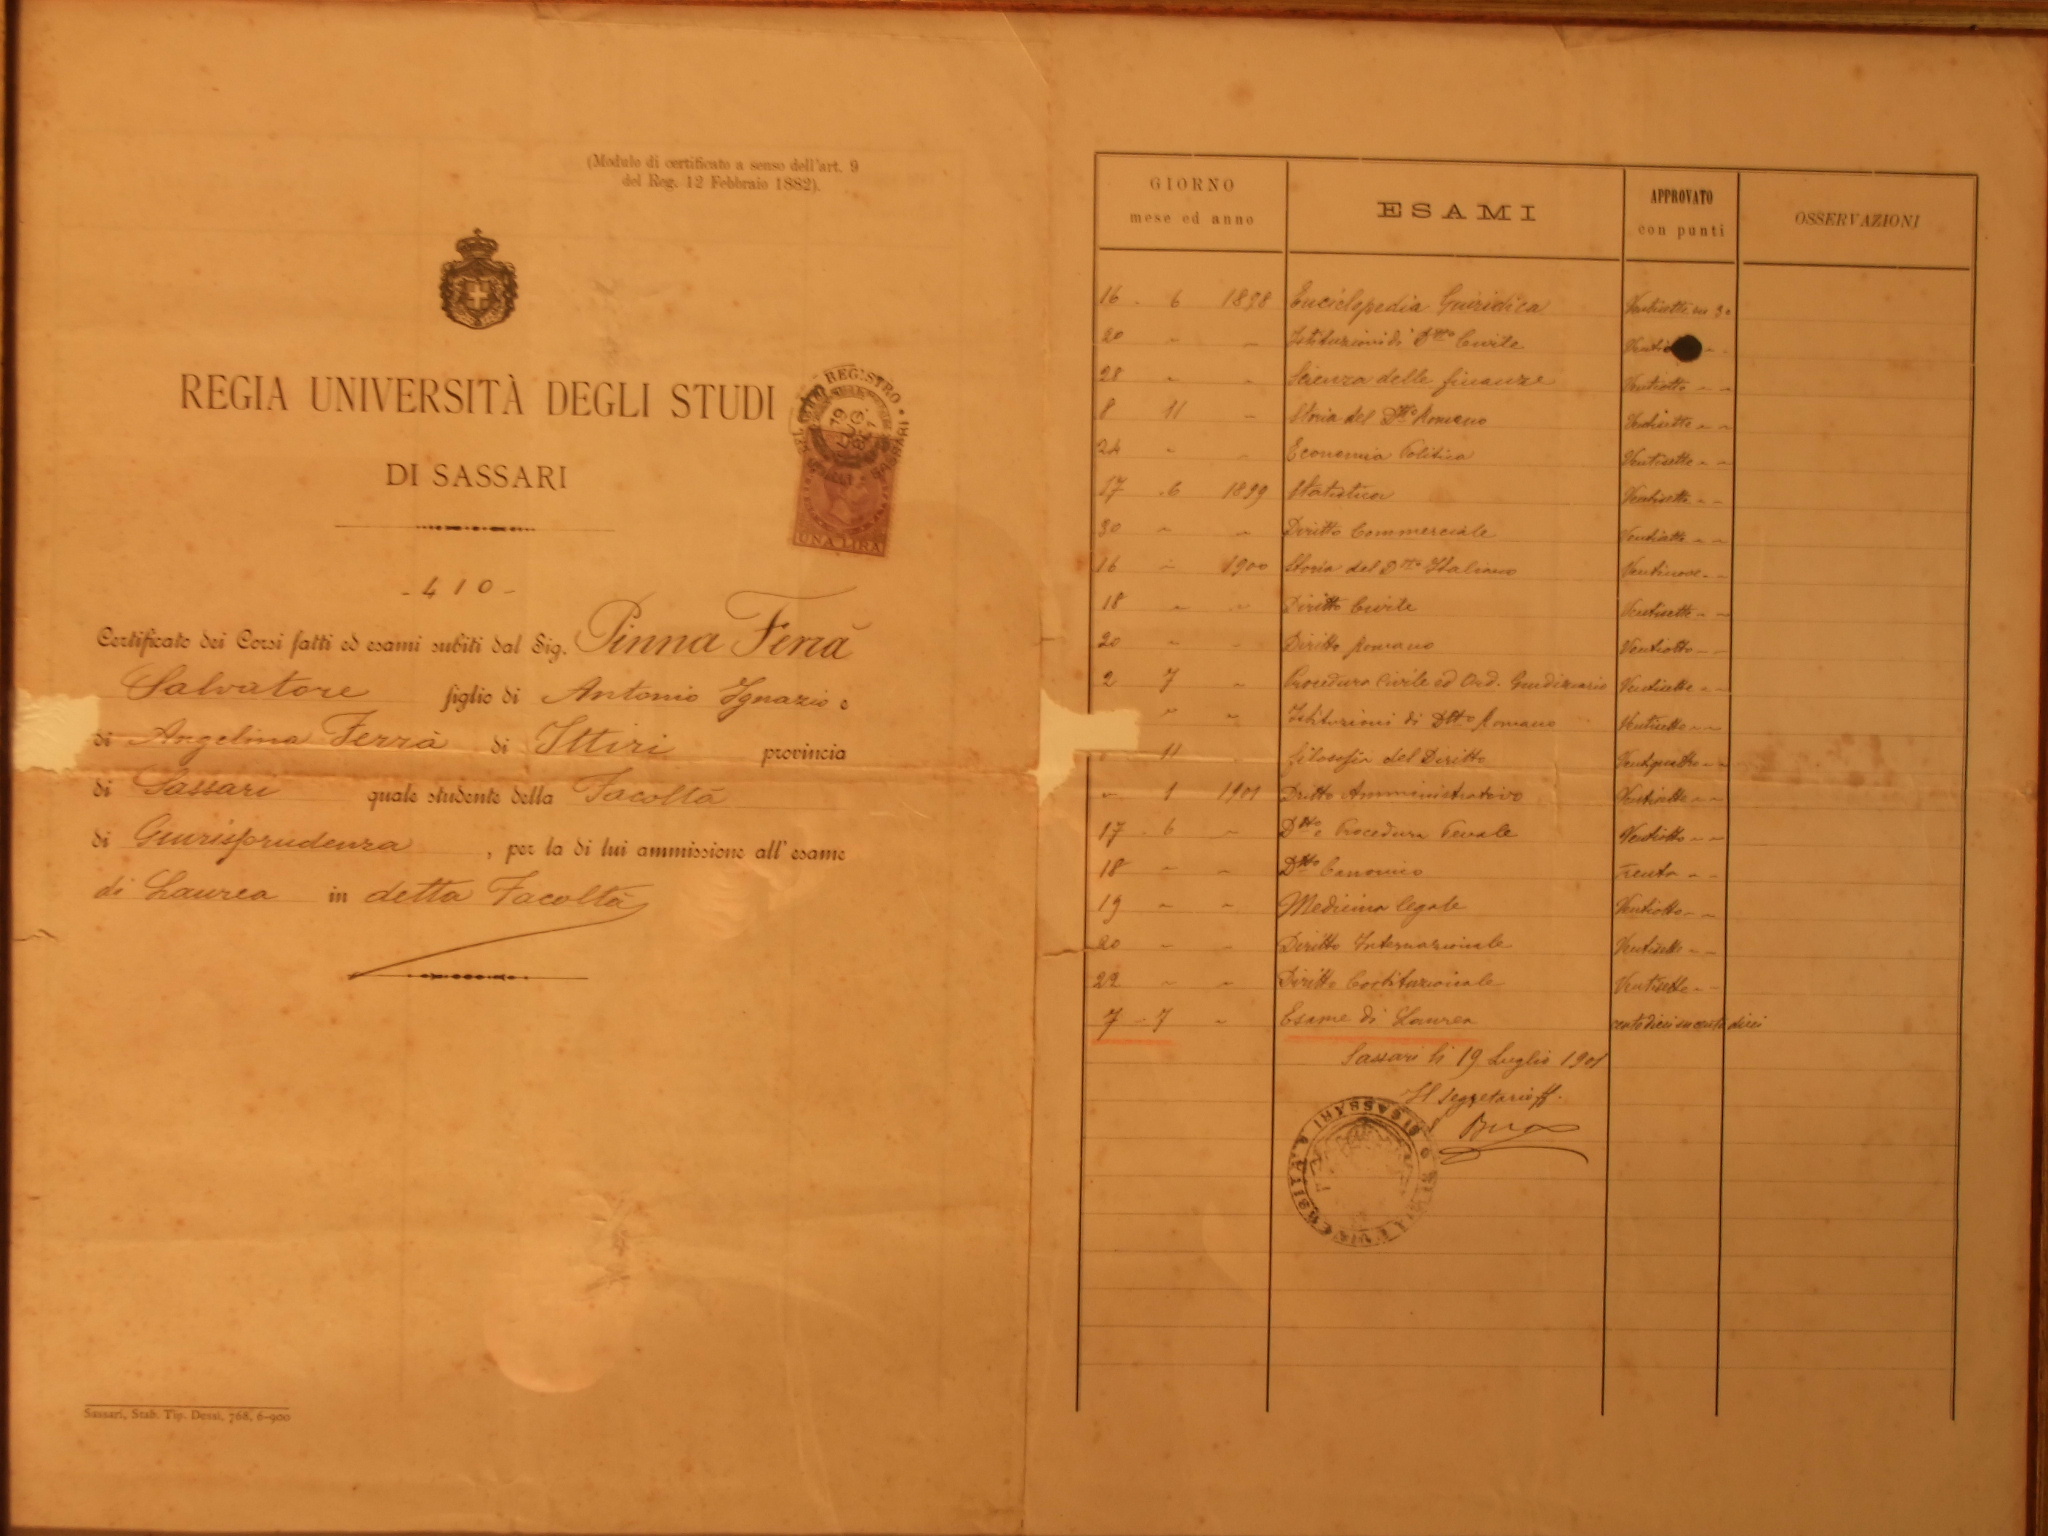 (Modulo di certificato a senso dell'art. 9
del Reg. 12 Febbraio 1882).
REGIA UNIVERSITÀ DEGLI STUDI
DI SASSARI
REGISTRO
SASSARI
UNA LIRA
- 410 -
Certificato dei Corsi fatti ed esami subiti dal Sig. Pinna Ferrà
Salvatore figlio di Antonio Ignazio e
di Angelina Ferrà di Ittiri provincia
di Sassari quale studente della Facoltà
di Giurisprudenza, per la di lui ammissione all'esame
di Laurea in detta Facoltà
Sassari, Stab. Tip. Dessì, 766, 6-900
GIORNO
mese ed anno
ESAMI
APPROVATO
con punti
OSSERVAZIONI
16 . 6 1898 Enciclopedia Giuridica Ventisette su 30
20 " " Istituzioni di Dtto Civile
28 " " Scienza delle finanze Ventiotto " "
8 11 " Storia del Dtto Romano Ventisette " "
24 " " Economia Politica Ventisette " "
17 . 6 1899 Statistica Ventisette " "
30 " " Diritto Commerciale Ventiotto " "
16 " 1900 Storia del Dtto Italiano Ventinove " "
18 " " Diritto Civile Ventisette " "
20 " " Diritto Romano Ventiotto " "
2 7 " Procedura Civile ed Ord. Giudiziario Ventisette " "
" " Istituzioni di Dtto Romano Ventisette " "
11 Filosofia del Diritto Ventiquattro " "
" 1 1901 Dritto Amministrativo Ventisette " "
17 . 6 " Dtto e Procedura Penale Ventiotto " "
18 " " Dtto Canonico Trenta " "
19 " " Medicina legale Ventiotto " "
20 " " Diritto Internazionale Ventisette " "
22 " " Diritto Costituzionale Ventisette " "
7 - 7 " Esame di Laurea centodieci su cento dieci
Sassari li 19 Luglio 1901
Il Segretario ff.
SASSARI